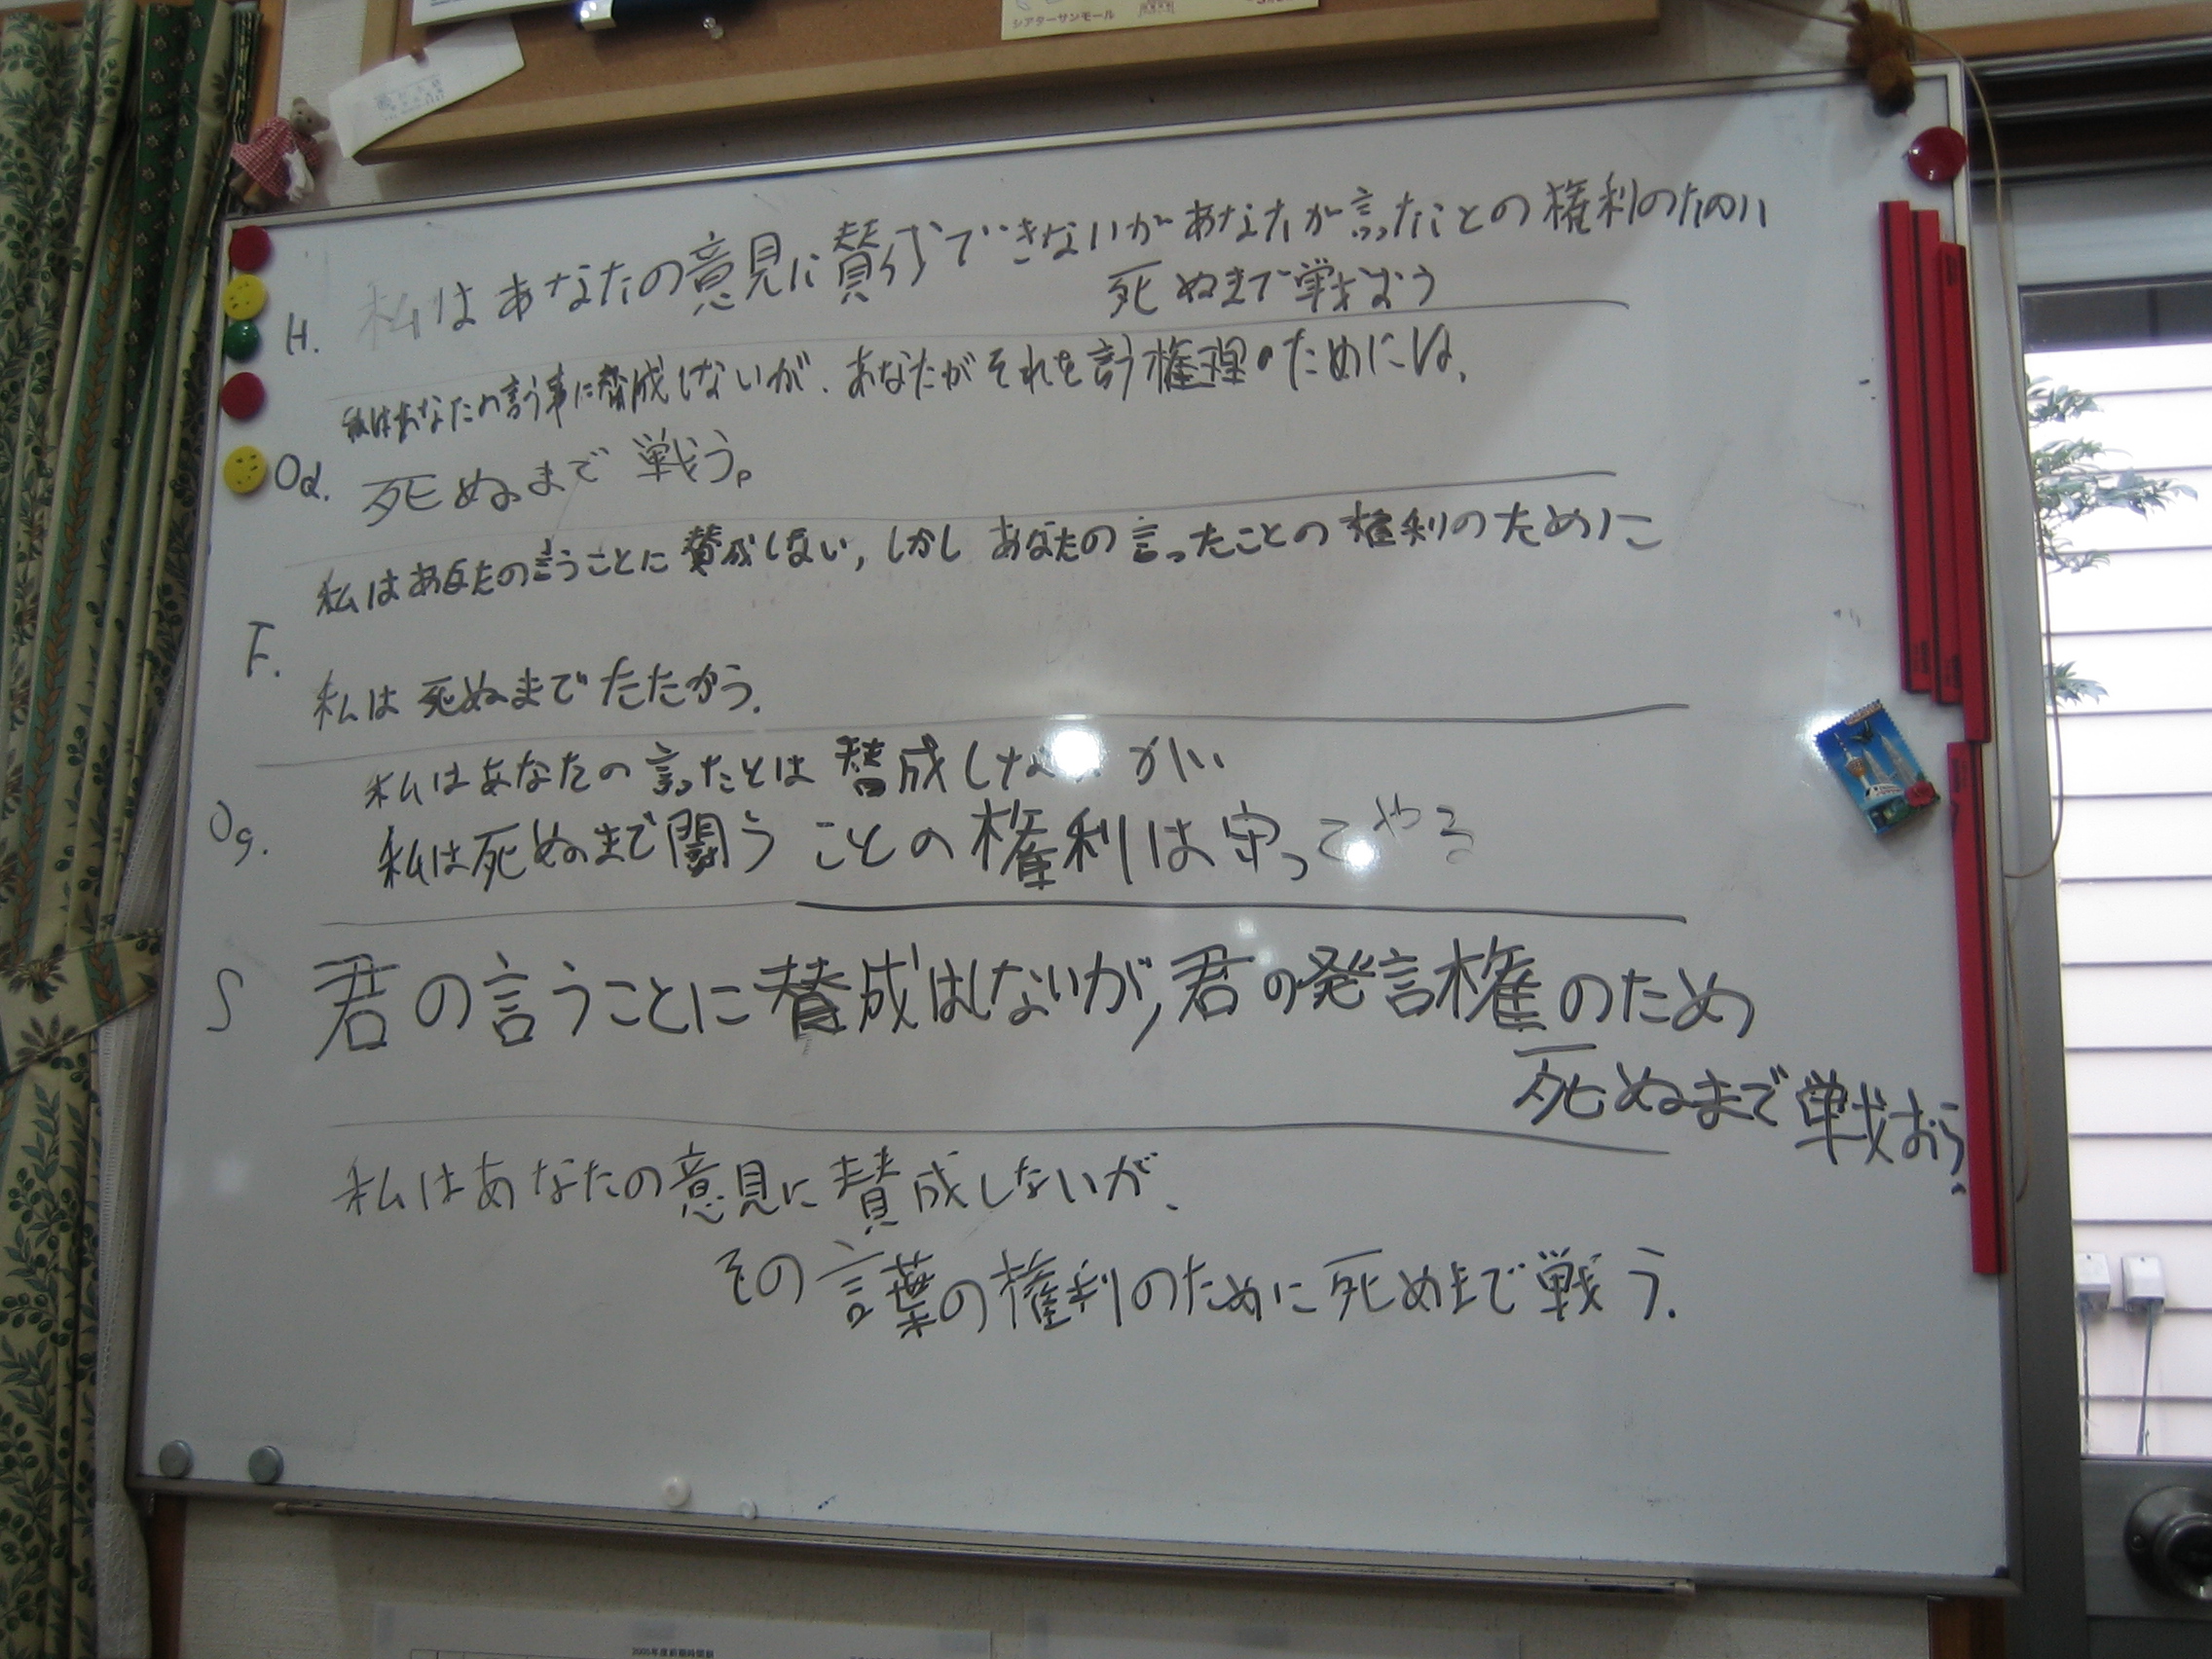 シアターサンモール
H. 私はあなたの意見に賛成できないがあなたが言ったことの権利のために
死ぬまで戦おう
私はあなたの言う事に賛成しないが、あなたがそれを言う権理のためには、
Od. 死ぬまで戦う。
私はあなたの言うことに賛成しない, しかし あなたの言ったことの権利のために
F.
私は死ぬまでたたかう.
私はあなたの言ったとは賛成しな が、
Og. 私は死ぬまで闘うことの権利は守ってやる
S 君の言うことに賛成はしないが, 君の発言権のため
死ぬまで戦おう.
私はあなたの意見に賛成しないが、
その言葉の権利のために死ぬまで戦う.
2005年度前期時間割